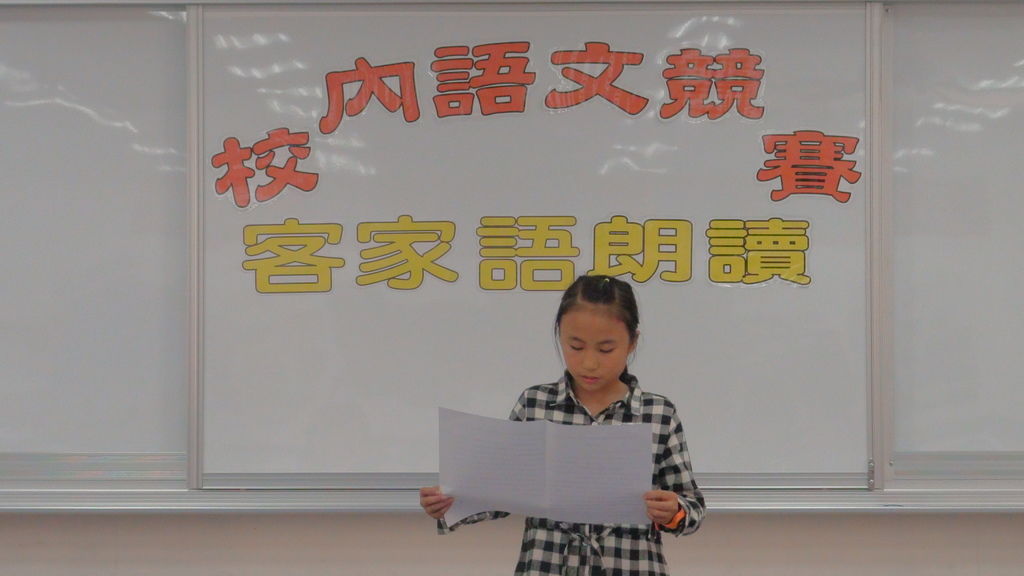 校內語文競賽
客家語朗讀